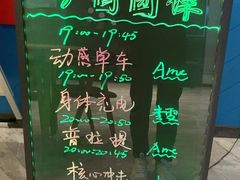 19:00-19:45
动感单车
19:00-19:50 Ame
身体充电
20:00-20:50
普拉提
20:00-20:45 Ame
核心冲击